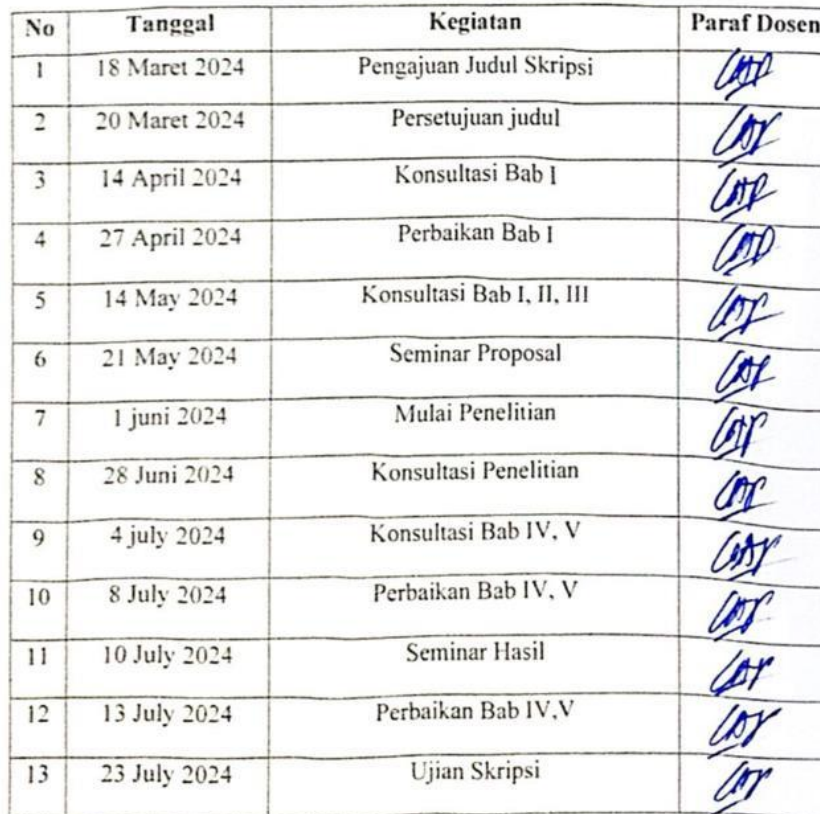 No Tanggal Kegiatan Paraf Dosen
1 18 Maret 2024 Pengajuan Judul Skripsi
2 20 Maret 2024 Persetujuan judul
3 14 April 2024 Konsultasi Bab I
4 27 April 2024 Perbaikan Bab I
5 14 May 2024 Konsultasi Bab I, II, III
6 21 May 2024 Seminar Proposal
7 1 juni 2024 Mulai Penelitian
8 28 Juni 2024 Konsultasi Penelitian
9 4 july 2024 Konsultasi Bab IV, V
10 8 July 2024 Perbaikan Bab IV, V
11 10 July 2024 Seminar Hasil
12 13 July 2024 Perbaikan Bab IV,V
13 23 July 2024 Ujian Skripsi